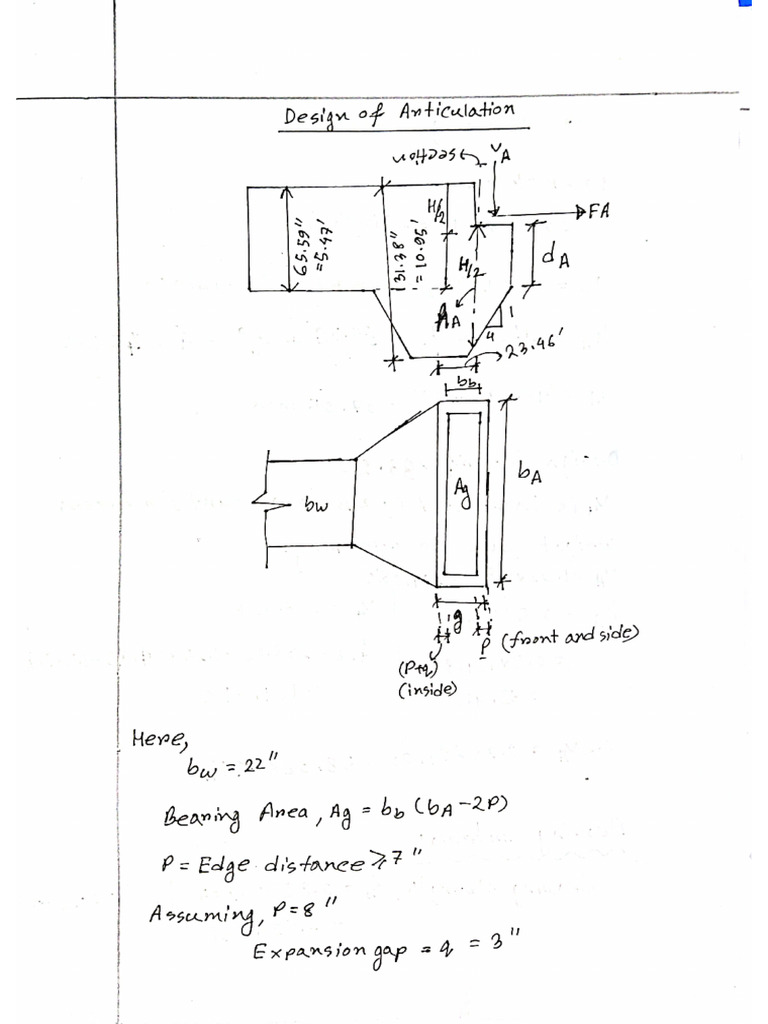 Design of Articulation
section
VA
FA
H/2
65.59"
=5.47'
131.48"
= 10.95'
H/2
dA
AA
1
4
23.46'
bb
bA
Ag
bw
g
P (front and side)
(P+q)
(inside)
Here,
bw = 22"
Bearing Area, Ag = bb (bA-2P)
P = Edge distance ⩾ 7"
Assuming, P=8"
Expansion gap = q = 3"